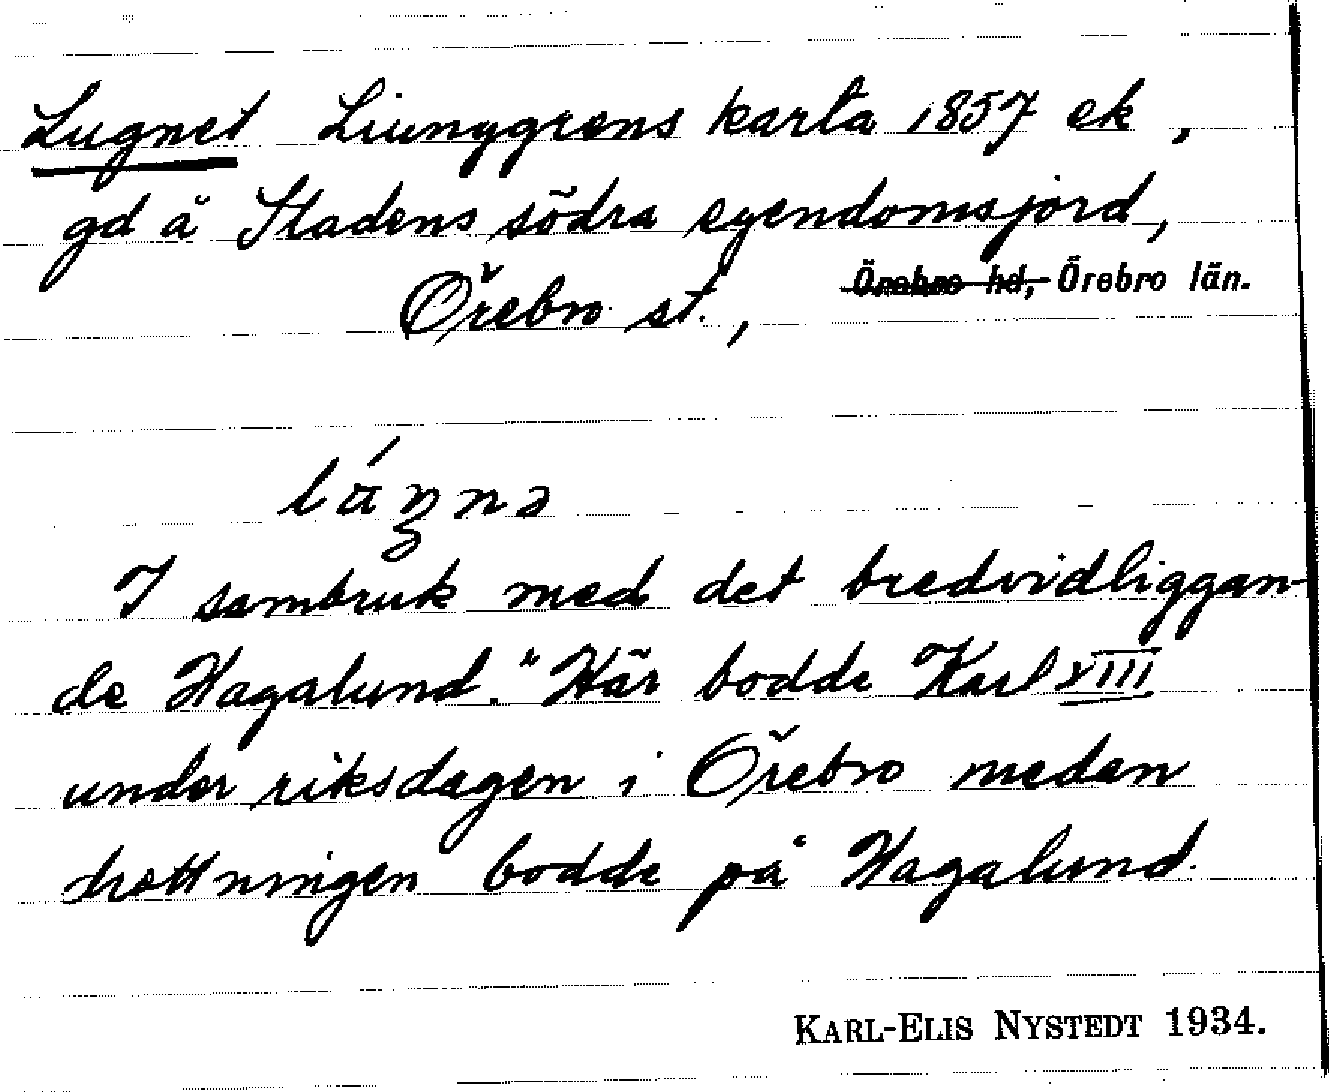 Lugnet Liunggrens karta 1857 ek,
gd å Stadens södra egendomsjord,
Örebro st., ~~Örebro hd,~~ Örebro län.
I sambruk med det bredvidliggan-
de Hagalund. "Här bodde Karl XIII
under riksdagen i Örebro medan
drottningen bodde på Hagalund.
KARL-ELIS NYSTEDT 1934.